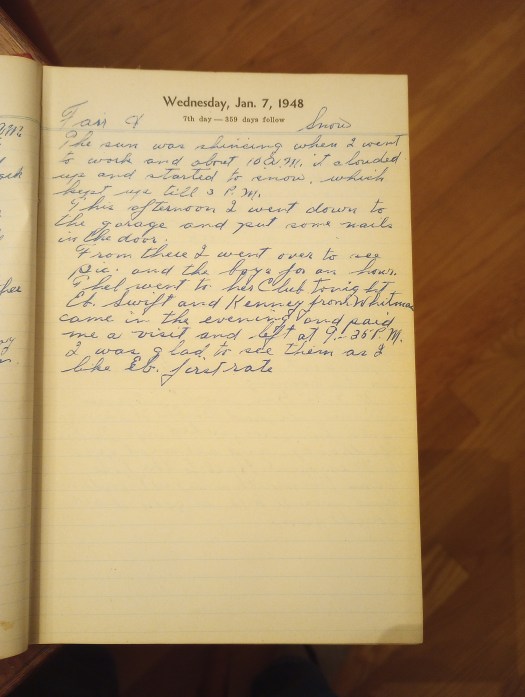 Wednesday, Jan. 7, 1948
7th day — 359 days follow
Fair & Snow
The sun was shineing when I went
to work and about 10 A.M. it clouded
up and started to snow. which
kept up till 3 P.M.
This afternoon I went down to
the garage and put some nails
in the door.
From there I went over to see
Vic. and the boys for an hour.
Thel went to her Club tonight
Eb. Swift and Kenney from Whitman
came in the evening and paid
me a visit and left at 9-35 P.M.
I was glad to see them as I
like Eb. first rate